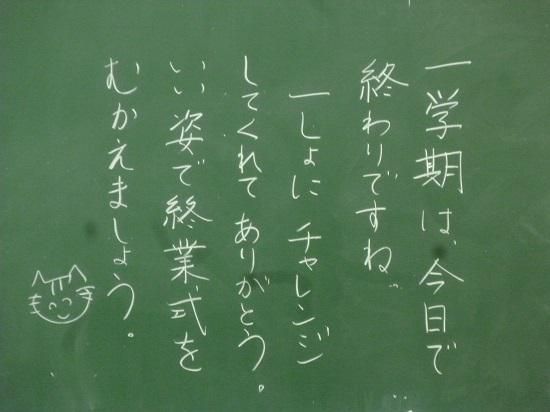 一学期は、今日で
終わりですね。
一しょに チャレンジ
してくれて ありがとう。
いい姿で終業式を
むかえましょう。